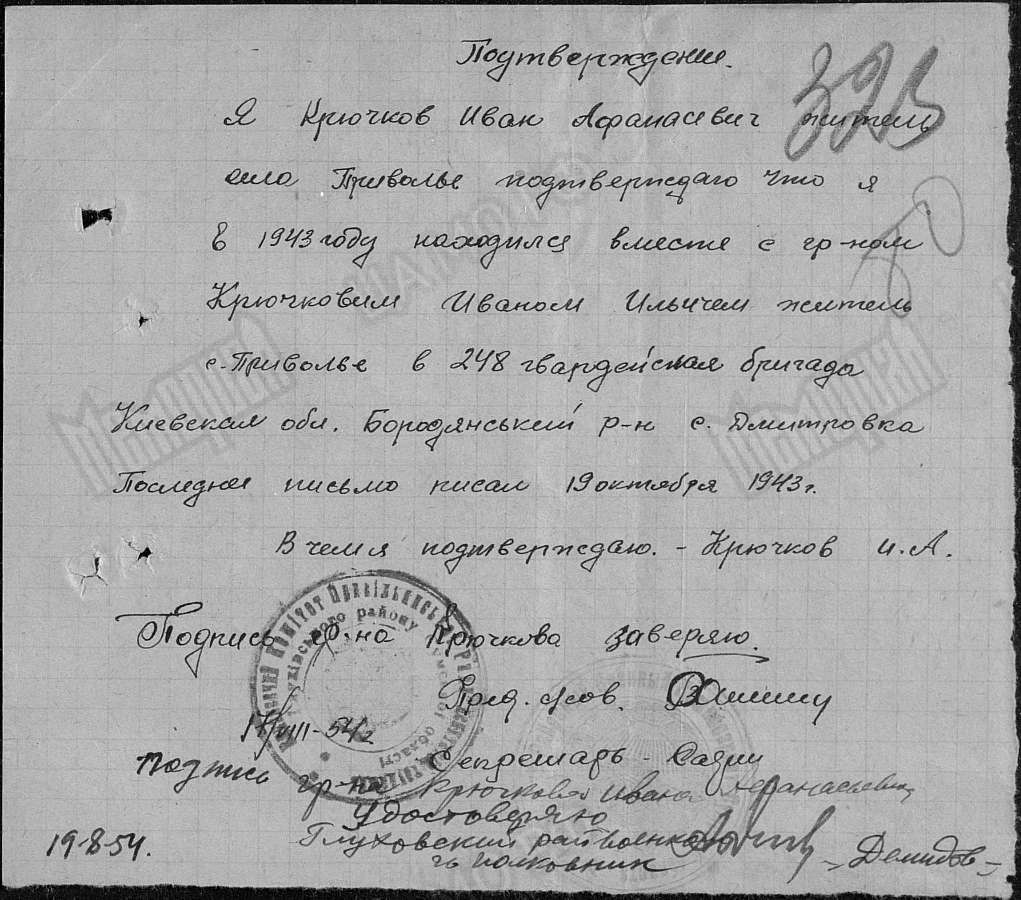 Подтверждение.
Я Крючков Иван Афанасевич житель
села Приволье подтверждаю что я
в 1943 году находился вместе с гр-ном
Крючковим Иваном Ильичем житель
с. Приволье в 248 гвардейская бригада
Киевская обл. Бородянський р-н с. Дмитровка
Последнее письмо писал 19 октября 1943 г.
В чем я подтверждаю. - Крючков И.А.
Подпись гр-на Крючкова заверяю.
Пред.
17/VIII-54 г
Секретарь -
Подпись гр-на Крючкова Ивана Афанасьевич
Удостоверяю
Глуховский райвоенком
полковник
- Демидов -
19-8-54.
Мемориал
Мемориал